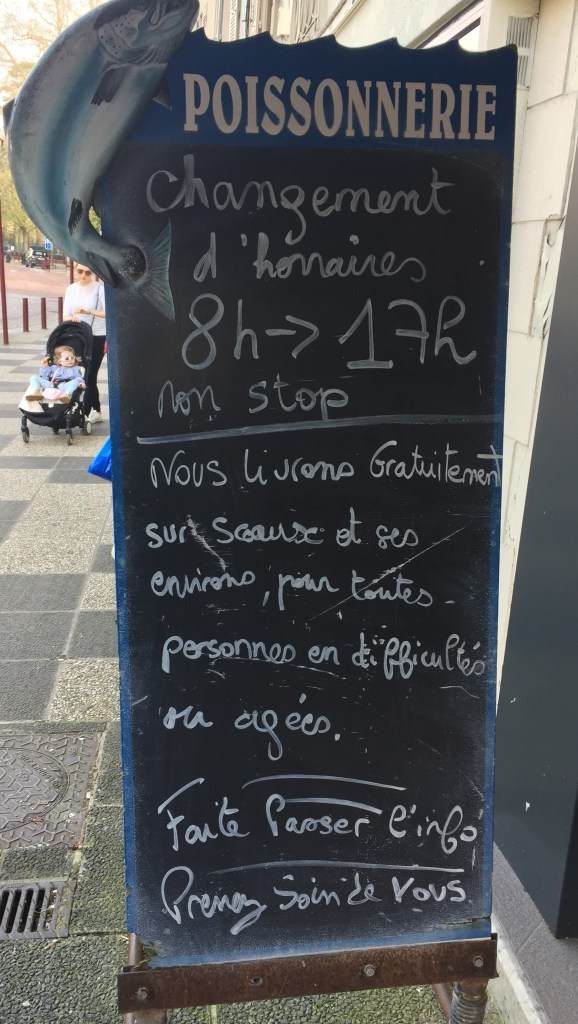 POISSONNERIE
changement
d'horaires
8h -> 17h
non stop
Nous livrons Gratuitement
sur Sceaux et ses
environs, pour toutes
personnes en difficultés
ou agées.
Faite Passer l'info
Prenez Soin de Vous